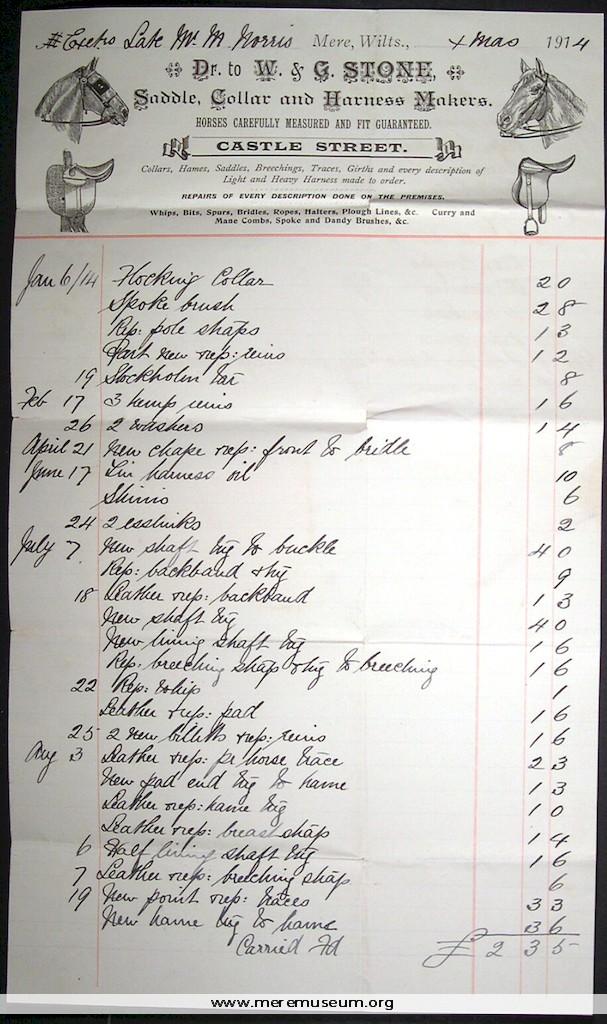 Exctrs Late Mr. M. Norris Mere, Wilts., Xmas 1914
Dr. to W. & G. STONE,
Saddle, Collar and Harness Makers.
HORSES CAREFULLY MEASURED AND FIT GUARANTEED.
CASTLE STREET.
Collars, Hames, Saddles, Breechings, Traces, Girths and every description of
Light and Heavy Harness made to order.
REPAIRS OF EVERY DESCRIPTION DONE ON THE PREMISES.
Whips, Bits, Spurs, Bridles, Ropes, Halters, Plough Lines, &c. Curry and
Mane Combs, Spoke and Dandy Brushes, &c.
Jan 6/14 Flocking Collar 2 0
Spoke brush 2 8
Rep: pole straps 1 3
Part new rep: reins 1 2
19 Stockholm tar 8
Feb 17 3 hemp reins 1 6
26 2 washers 1 4
April 21 New chape rep: front to bridle 8
June 17 Tin harness oil 10
6
24 2 esslinks 2
July 7 New shaft tug to buckle 4 0
Rep: backband & tug 9
18 Leather rep: backband 1 3
New shaft tug 4 0
New lining shaft tug 1 6
Rep: breeching strap & tug to breeching 1 6
22 Rep: whip 1
Leather & rep: pad 1 6
25 2 new billets rep: reins 1 6
Aug 3 Leather rep: pr horse trace 2 3
New pad end tug to hame 1 3
Leather rep: hame tug 1 0
Leather rep: breast strap 1 4
6 Half lining shaft tug 1 6
7 Leather rep: breeching strap 6
19 New point rep: traces 3 3
New hame tug to hame 3 6
Carried Fd £ 2 3 5
www.meremuseum.org